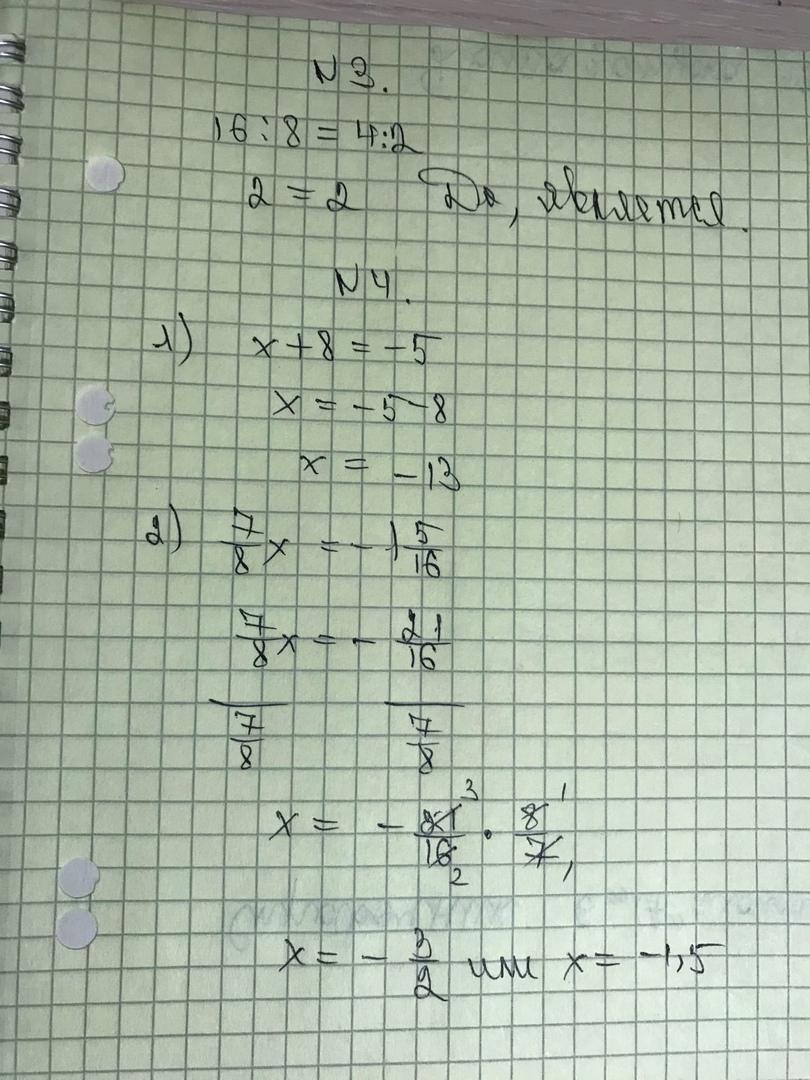 N 3.
16 : 8 = 4:2
2 = 2 Да, является.
N 4.
1) x + 8 = -5
x = -5 - 8
x = -13
2) 7/8 x = - 1 5/16
7/8 x = - 21/16
7/8 7/8
x = - 21/16 · 8/7 3 1 2 1
x = - 3/2 или x = -1,5